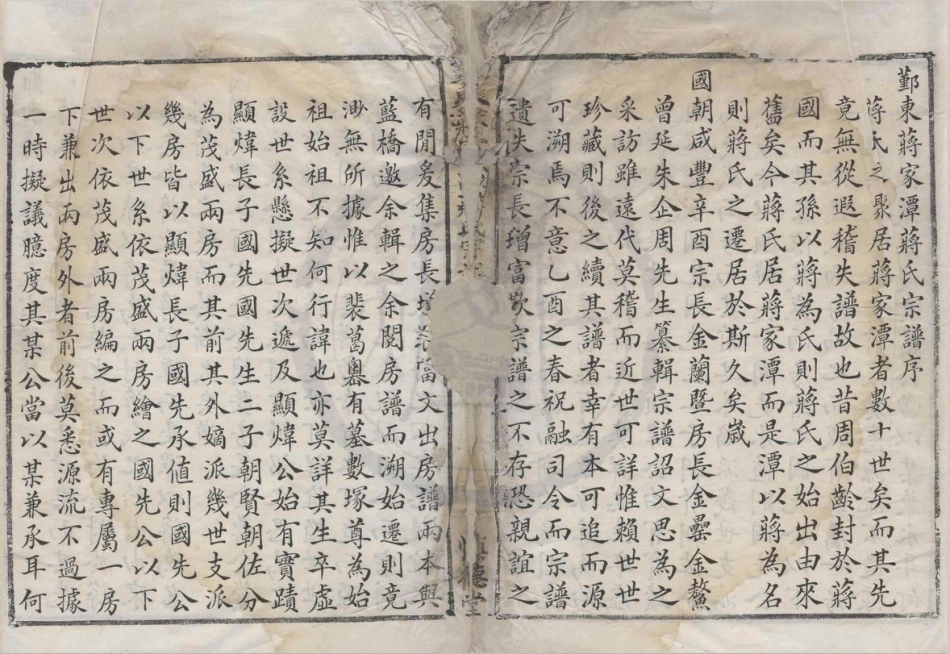 鄞東蔣家潭蔣氏宗譜序
蔣氏之聚居蔣家潭者數十世矣而其先
竟無從遐稽失譜故也昔周伯齡封於蔣
國而其孫以蔣為氏則蔣氏之始出由來
舊矣今蔣氏居蔣家潭而是潭以蔣為名
則蔣氏之遷居於斯久矣歲
國朝咸豐辛酉宗長金蘭暨房長金罍金鰲
曾延朱企周先生纂輯宗譜詔文思為之
采訪雖遠代莫稽而近世可詳惟賴世世
珍藏則後之續其譜者幸有本可追而源
可溯焉不意乙酉之春祝融司令而宗譜
遺失宗長增富歎宗譜之不存恐親誼之
有間爰集房長增當文出房譜兩本與
藍橋邀余輯之余閱房譜而溯始遷則竟
渺無所據惟以裴葛嶴有墓數塚尊為始
祖始祖不知何行諱也亦莫詳其生卒虛
設世系懸擬世次遞及顯煒公始有實蹟
顯煒長子國先國先生二子朝賢朝佐分
為茂盛兩房而其前其外嫡派幾世支派
幾房皆以顯煒長子國先承值則國先公
以下世系依茂盛兩房繪之國先公以下
世次依茂盛兩房編之而或有專屬一房
下兼出兩房外者前後莫悉源流不過據
一時擬議臆度其某公當以某兼承耳何
惇德堂